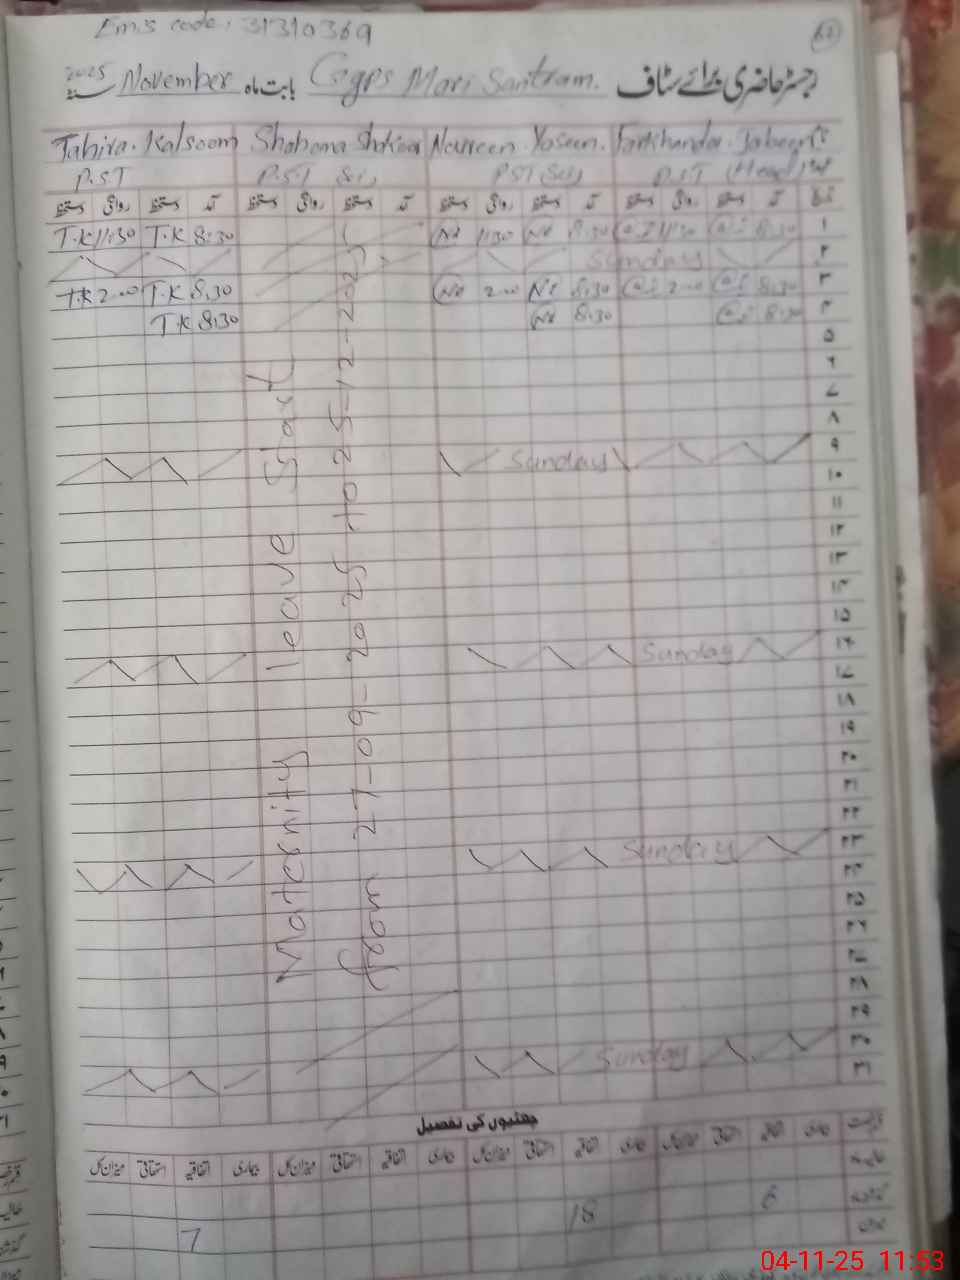 Ems code: 31310369
62
رجسٹر حاضری برائے سٹاف Ggps Mari Santram. بابت ماہ November سنہ 2025
Tahira. Kalsoom Shabana Naureen Yaseen. Farkhanda. Jabeen
P.S.T P.S.T PST P.S.T (Head)
دستخط روانگی دستخط آمد دستخط روانگی دستخط آمد دستخط روانگی دستخط آمد دستخط روانگی دستخط آمد تاریخ
T.K 11:30 T.K 8:30 11:30 8:30 11:30 8:30 ۱
Sunday ۲
T.K 2:00 T.K 8:30 2:00 8:30 2:00 8:30 ۳
T.K 8:30 8:30 8:30 ۴
۵
۶
۷
۸
Sunday ۹
۱۰
۱۱
۱۲
۱۳
۱۴
۱۵
Sunday ۱۶
۱۷
۱۸
۱۹
۲۰
۲۱
۲۲
Sunday ۲۳
۲۴
۲۵
۲۶
۲۷
۲۸
۲۹
Sunday ۳۰
۳۱
Maternity leave start
from 27-09-2025 to 25-12-2025
چھٹیوں کی تفصیل
میزان کل استحقاقی اتفاقیہ بیماری میزان کل استحقاقی اتفاقیہ بیماری میزان کل استحقاقی اتفاقیہ بیماری میزان کل استحقاقی اتفاقیہ بیماری
7 18 6
04-11-25 11:53